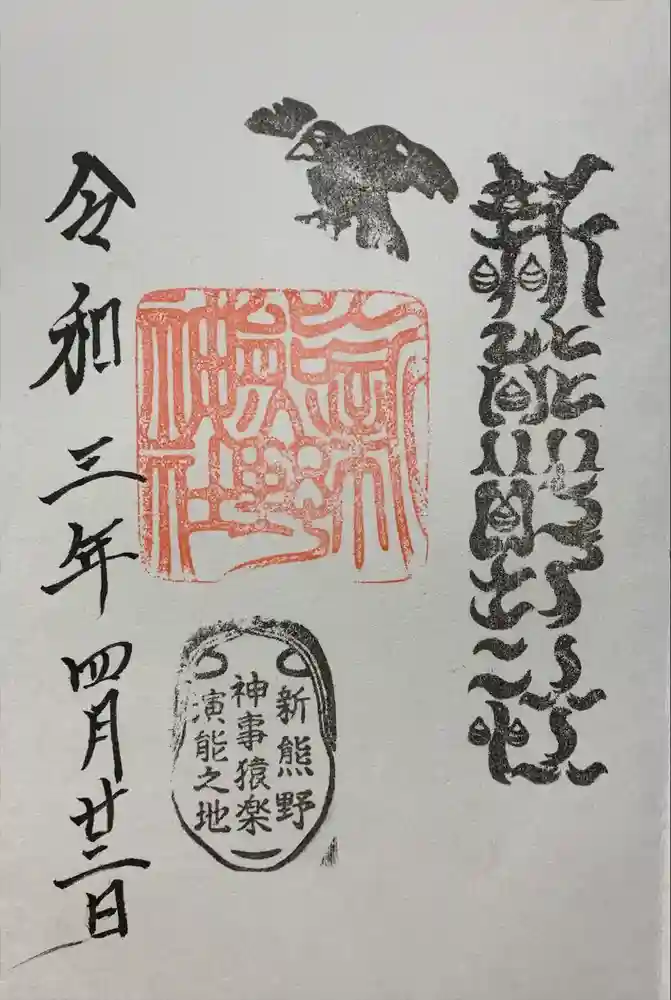 新熊野社
新熊野神社
新熊野
神事猿楽
演能之地
令和三年四月廿二日